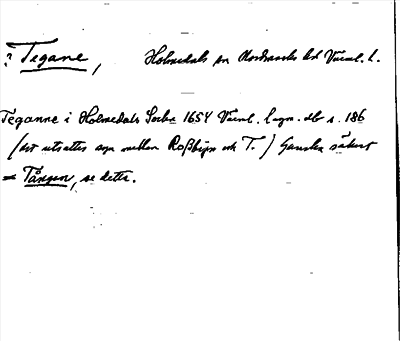 ? Tegane, Holmedals sn Nordmarks hd Värml. l.
Teganne i Holmedals Socken 1654 Värml. lagm. dbr s. 186
(det utsattes syn mellan Roßbyn och T.) Ganska säkert
= Tången, se detta.